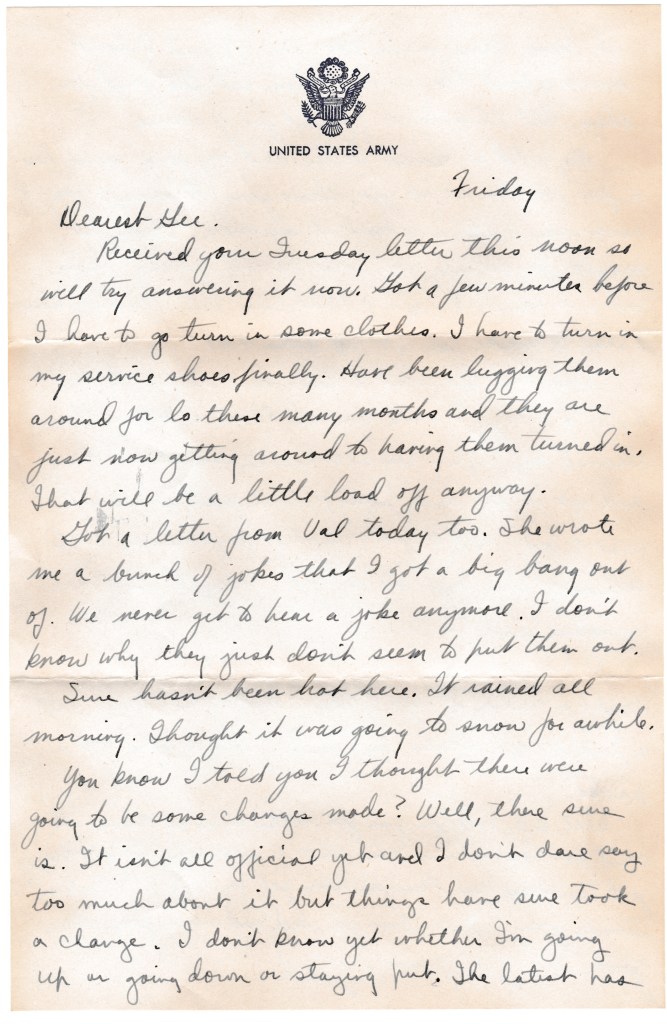 UNITED STATES ARMY
Friday
Dearest Gee.
Received your Tuesday letter this noon so
will try answering it now. Got a few minutes before
I have to go turn in some clothes. I have to turn in
my service shoes finally. Have been lugging them
around for lo these many months and they are
just now getting around to having them turned in.
That will be a little load off anyway.
Got a letter from Val today too. She wrote
me a bunch of jokes that I got a big bang out
of. We never get to hear a joke anymore. I don't
know why they just don't seem to put them out.
Sure hasn't been hot here. It rained all
morning. Thought it was going to snow for awhile.
You know I told you I thought there were
going to be some changes made? Well, there sure
is. It isn't all official yet and I don't dare say
too much about it but things have sure took
a change. I don't know yet whether I'm going
up or going down or staying put. The latest has